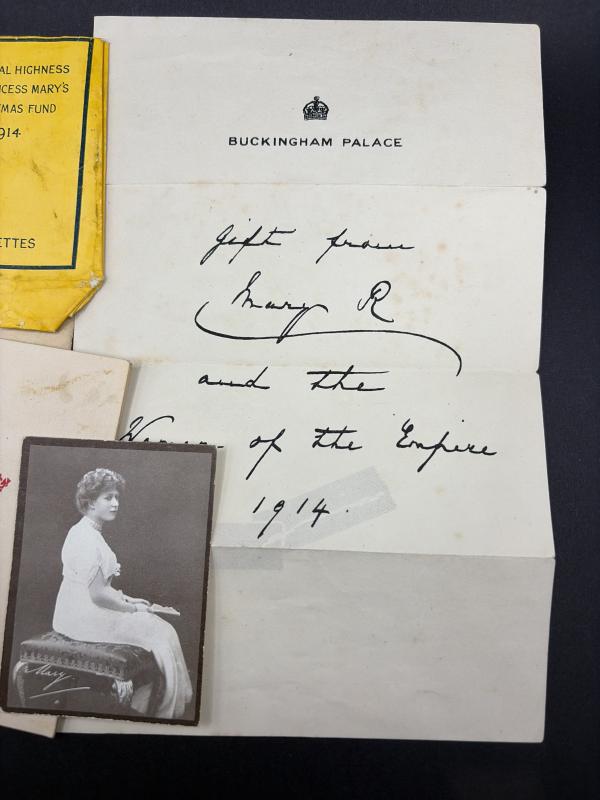 AL HIGHNESS
CESS MARY'S
MAS FUND
914
ETTES
BUCKINGHAM PALACE
gift from
Mary R
and the
Women of the Empire
1914.
Mary